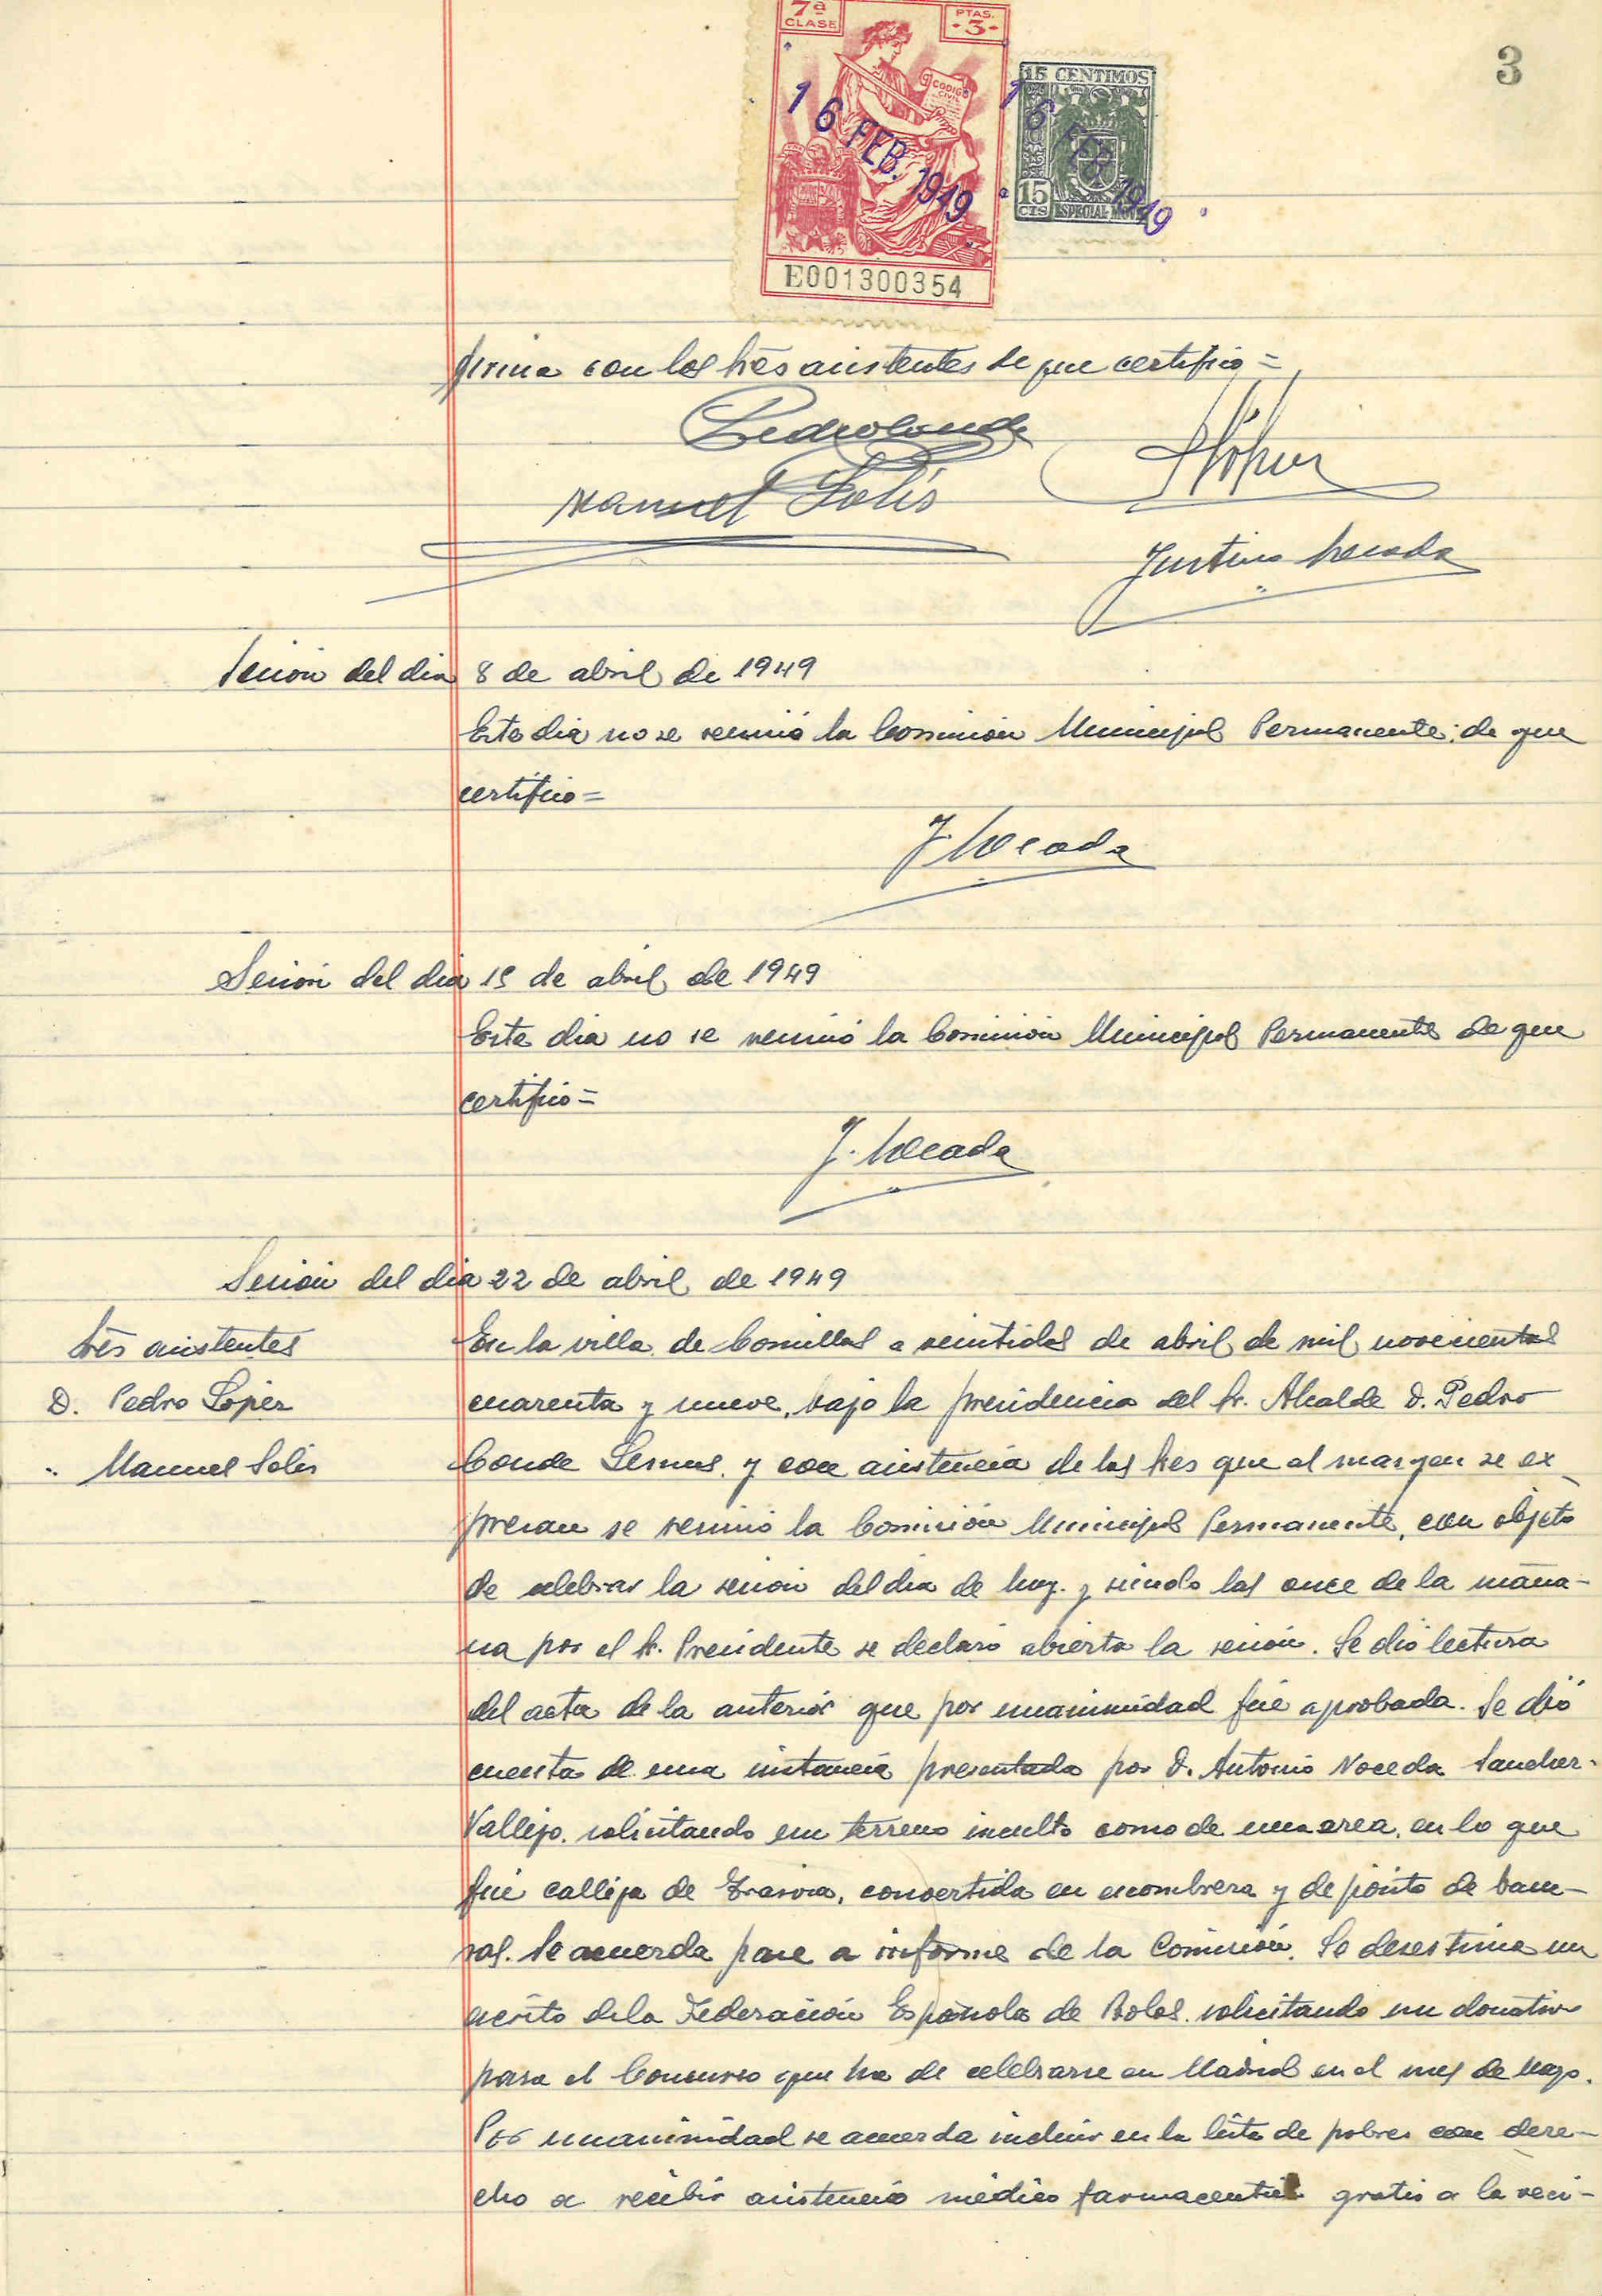 7ª CLASE
PTAS. 3
CODIGO CIVIL
16 FEB. 1949
E001300354
15 CENTIMOS
16 FEB. 1949
15 CTS
ESPECIAL MOVIL
3
firma con los tres asistentes de que certifico =
Pedro Conde
PLópez
Manuel Solís
Justino
Sesion del dia 8 de abril de 1949
Este dia no se reunió la Comision Municipal Permanente; de que
certifico =
J.
Sesion del dia 15 de abril de 1949
Este dia no se reunió la Comision Municipal Permanente de que
certifico =
J.
Sesion del dia 22 de abril de 1949
Sres asistentes
D. Pedro Lopez
" Manuel Solis
En la villa de Comillas a veintidos de abril de mil novecientos
cuarenta y nueve, bajo la presidencia del Sr. Alcalde D. Pedro
Conde y con asistencia de los Sres que al margen se ex-
presan se reunió la Comisión Municipal Permanente, con objeto
de celebrar la sesion del dia de hoy. y siendo las once de la maña-
na por el Sr. Presidente se declaró abierta la sesion. Se dió lectura
del acta de la anterior que por unanimidad fué aprobada. Se dió
cuenta de una instancia presentada por D. Antonio Noceda Sanchez-
Vallejo, solicitando un terreno inculto como de un area, en lo que
fué calleja de Trasvia, convertida en escombrera y deposito de basu-
ras. Se acuerda pase a informe de la Comisión. Se desestima un
escrito dela Federación Española de Bolos solicitando un donativo
para el Concurso que ha de celebrarse en Madrid en el mes de Mayo.
Por unanimidad se acuerda incluir en la lista de pobres con dere-
cho a recibir asistencia médico farmaceutica gratis a la veci-